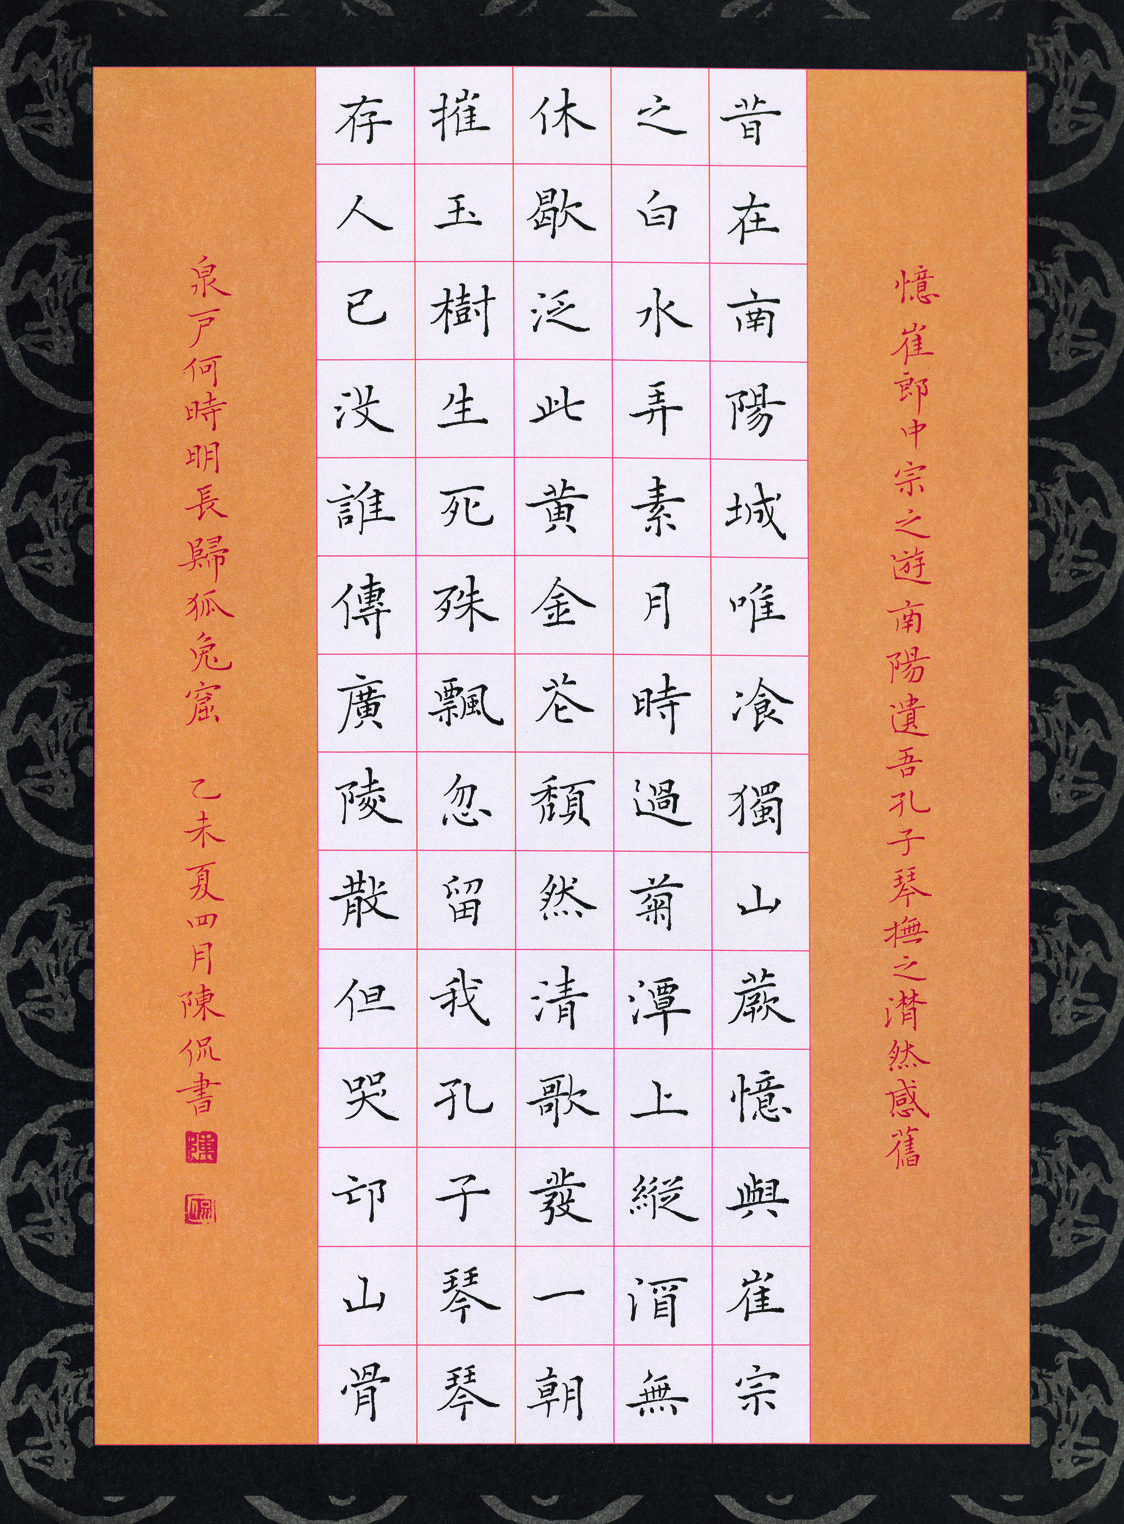 憶崔郎中宗之遊南陽遺吾孔子琴撫之潸然感舊
昔在南陽城唯飡獨山蕨憶與崔宗
之白水弄素月時過菊潭上縱酒無
休歇泛此黃金花頹然清歌發一朝
摧玉樹生死殊飄忽留我孔子琴琴
存人已沒誰傳廣陵散但哭邙山骨
泉戶何時明長歸狐兔窟 乙未夏四月陳侃書
陳